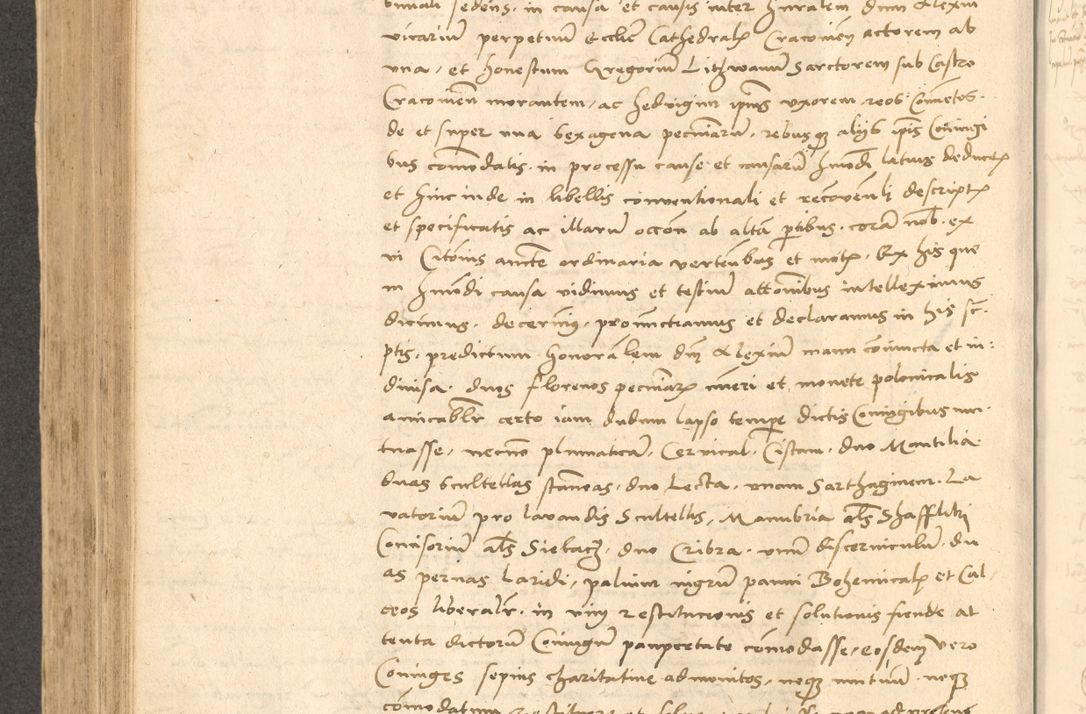 bunali sedens in causa et causis inter honralem dnm Alexiu
vicariu perpetuu Ecclie Cathedralis Cracovien actorem ab
una, et honestum Gregoriu Lithwanu Sarctorem sub Castro
Cracovien morantem, ac hedvigim ipius uxorem reos Convetos
de et super una sexagena pecuniaru, rebusq aliis ipis Coniugi
bus comodatis in processu cause et causaru hmodi latius deducte
et hinc inde in libellis conventionali et reconvenli descriptis
et specificatis ac illaru occon ab alta partibus coram nob ex
vi Citonis aucte ordinaria vertenbus et motis, Ex his que
in hmodi causa vidimus et testiu attonibus intelleximus
dicimus, decernim, pronunctiamus et declaramus in his scri
ptis, predictum honoralem dnm Alexiu manu coniuncta et in:
divisa duos florenos pecuniaru nueri et monete polonicalis
amicablr certo iam dudum lapso tempe dictis Coniugibus mu
tuasse, necno plumatica, Cervical, Cistam, duo Mantilia
duas scultellas staneas, duo Lecta, unam Sarthaginem La
vatoriu pro lavandis Scultellis, Manubria als Shaffliki
Concisoriu als Siekacz, duo Cribra, unu discerniculu, du
as pernas Laridi, paliuim nigru panni Bohemicalis et Cal
ceos liberalr in vim restitucionis et solutionis fiende at
tenta dictoru Coniugu paupertate comodasse, eosdem vero
Coniuges sepius charitative admonitos, neq mutuu neq
comodatum